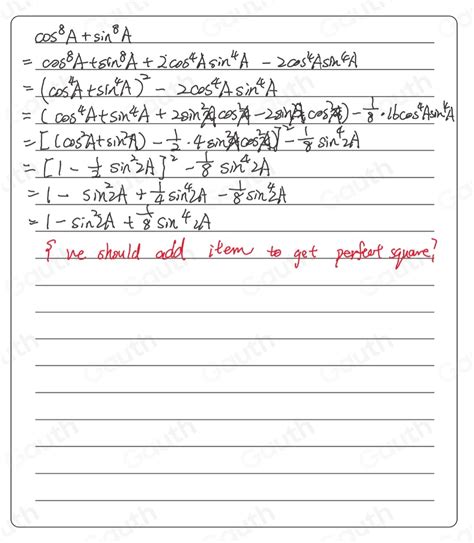 cos⁸A+sin⁸A
= cos⁸A+sin⁸A + 2cos⁴Asin⁴A - 2cos⁴Asin⁴A
= (cos⁴A+sin⁴A)² - 2cos⁴Asin⁴A
= (cos⁴A+sin⁴A + 2sin²Acos²A - 2sin²Acos²A) - 1/8 · 16cos⁴Asin⁴A
= [(cos²A+sin²A) - 1/2 · 4sin²Acos²A]² - 1/8 sin⁴2A
= [1 - 1/2 sin²2A]² - 1/8 sin⁴2A
= 1 - sin²2A + 1/4 sin⁴2A - 1/8 sin⁴2A
= 1 - sin²2A + 1/8 sin⁴2A
{ we should add item to get perfect square}
Gauth